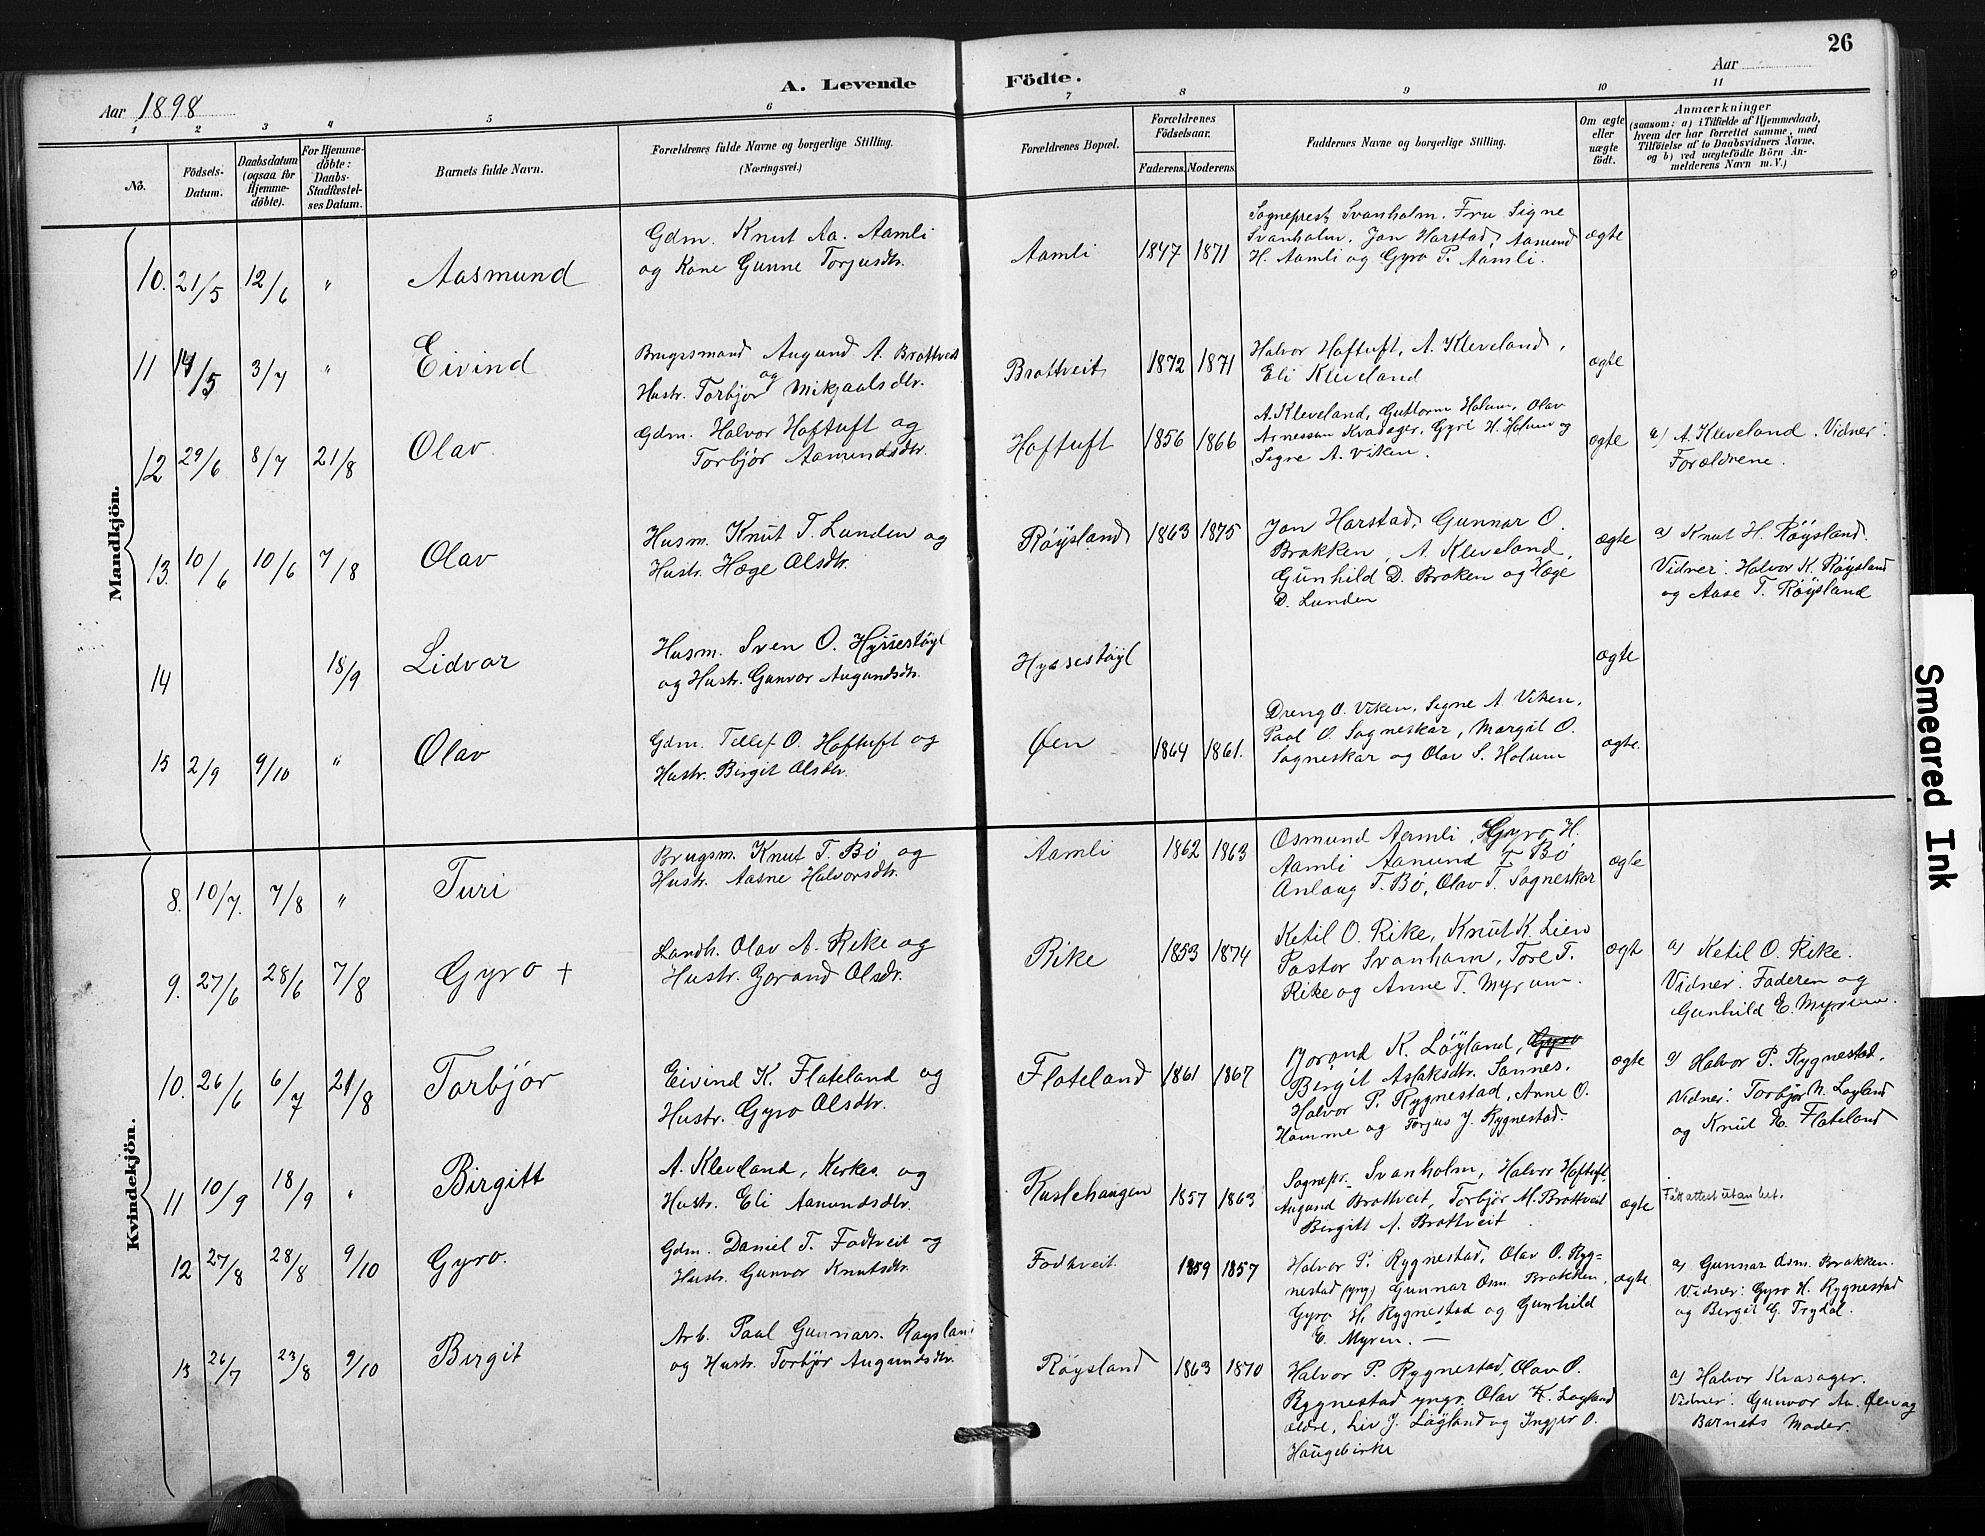 26
A. Levende Födte.
Aar 1898
Aar
1 2 3 4 5 6 7 8 9 10 11
No.
Födsels-Datum.
Daabsdatum (ogsaa for Hjemme-döbte).
For Hjemme-döbte: Daabs-Stadfæstel-ses Datum.
Barnets fulde Navn.
Forældrenes fulde Navne og borgerlige Stilling.
(Næringsvei.)
Forældrenes Bopæl.
Forældrenes Födselsaar.
Faderens. Moderens.
Faddernes Navne og borgerlige Stilling.
Om ægte eller uægte födt.
Anmærkninger
(saasom: a) i Tilfælde af Hjemmedaab,
hvem der har forrettet samme, med
Tilföielse af to Daabsvidners Navne,
og b) ved uægtefödte Börn An-
melderens Navn m. V.)
Mandkjön.
10. 21/5 12/6 " Aasmund
Gdm. Knut Aa. Aamli
og Kone Gunne Torjusdtr.
Aamli 1847 1871
Sogneprest Svanholm. Fru Signe
Svanholm. Jon Harstad, Aamund
H. Aamli og Gyro P. Aamli.
ægte
11 14/5 3/7 " Eivind
Brugsmand Augund A. Brottveit
og
Hustr. Torbjør Mikjaalsdtr.
Brottveit 1872 1871
Halvor Hoftuft, A. Kleveland,
Eli Kleveland
ægte
12 29/6 8/7 21/8 Olav.
Gdm. Halvor Hoftuft og
Torbjør Aamundsdtr.
Hoftuft 1856 1866
A. Kleveland, Guttorm Holum, Olav
Arnesson Kvasager, Gyri H. Holum og
Signe A. Viken.
ægte
a) A. Kleveland. Vidner:
Forældrene.
13. 10/6 10/6 7/8 Olav
Husm. Knut T. Lunden og
Hustr. Hæge Olsdtr.
Røysland 1863 1875
Jon Harstad, Gunnar O.
Brokken, A. Kleveland,
Gunhild D. Broken og Hæge
D. Lunden
ægte
a) Knut H. Røysland.
Vidner: Halvor K. Røysland
og Aase T. Røysland
14 18/9 Lidvor
Husm. Sven O. Hyssestøyl
og Hustr. Gunvor Augundsdtr.
Hyssestøyl
ægte
15 2/9 9/10 " Olav
Gdm. Tellef O. Hoftuft og
Hustr. Birgit Olsdtr.
Øen 1864 1861.
Dreng O. Viken, Signe A. Viken,
Paal O Sagneskar, Margit O.
Sagneskar og Olav S. Holum
ægte.
Kvindekjön.
8. 10/7. 7/8 " Turi
Brugsm. Knut T. Bø og
Hustr. Aasne Halvorsdtr.
Aamli 1862 1863
Osmund Aamli, Gyro H.
Aamli Aanund T. Bø
Anlaug T. Bø, Olav T. Sagneskar
ægte
9. 27/6 28/6 7/8 Gyro +
Landh. Olav A. Rike og
Hustr. Jorand Olsdr.
Rike 1853 1874
Ketil O. Rike, Knut K. Lien
Pastor Svanham, Tore T.
Rike og Anne T. Myrum.
ægte
a) Ketil O. Rike.
Vidner: Faderen og
Gunhild E. Myrum.
10. 26/6 6/7 21/8 Torbjør
Eivind K. Flateland og
Hustr. Gyro Olsdtr.
Flateland 1861 1867
Jorand K. Løyland, Gyro
Birgit Aslaksdtr. Sannes,
Halvor P. Rygnestad, Anne O.
Homme og Torjus J. Rygnestad.
ægte
a) Halvor P. Rygnestad.
Vidner: Torbjør N. Løyland
og Knut E. Flateland
11 10/9 18/9 " Birgitt
A. Kleveland, Kirkes. og
Hustr. Eli Aamundsdtr.
Kuslehaugen 1857 1863
Sognepr. Svanholm, Halvor Hoftuft,
Augund Brottveit, Torbjør M. Brottveit
Birgitt A. Brottveit
ægte
Fått attest utan bet.
12 27/8 28/8 9/10 Gyro.
Gdm. Daniel T. Fodtveit og
Hustr. Gunvor Knutsdtr.
Fodtveit. 1859 1857
Halvor P. Rygnestad, Olav O. Ryg-
nestad (yng) Gunnar Osm. Brokken,
Gyro H. Rygnestad og Gunhild
E. Myren. —
ægte
a) Gunnar Osm. Brokken.
Vidner: Gyro H. Rygnestad
og Birgit G. Trydal.
13 26/7 23/8 9/10 Birgit
Arb. Paal Gunnars. Røysland
og Hustr. Torbjør Augundsdtr.
Røysland 1863 1870
Halvor P. Rygnestad, Olav O.
Rygnestad yngr. Olav K. Løyland
ældre, Liv J. Løyland og Ingjer O.
Haugebirke
a) Halvor Kvasager.
Vidner: Gunvor Aa. Øen og
Barnets Moder.
Smeared Ink